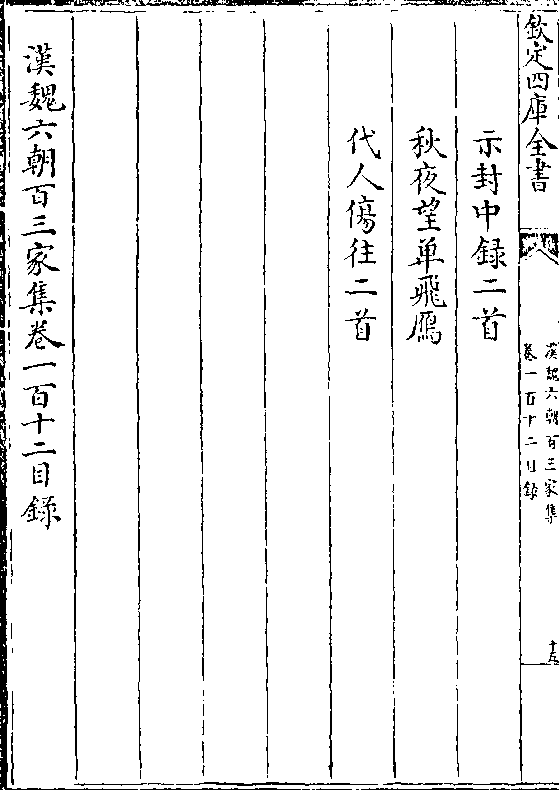 欽定四庫全書
漢魏六朝百三家集
卷一百十二目錄
十五
示封中録二首
秋夜望单飛鴈
代人傷往二首
漢魏六朝百三家集卷一百十二目錄